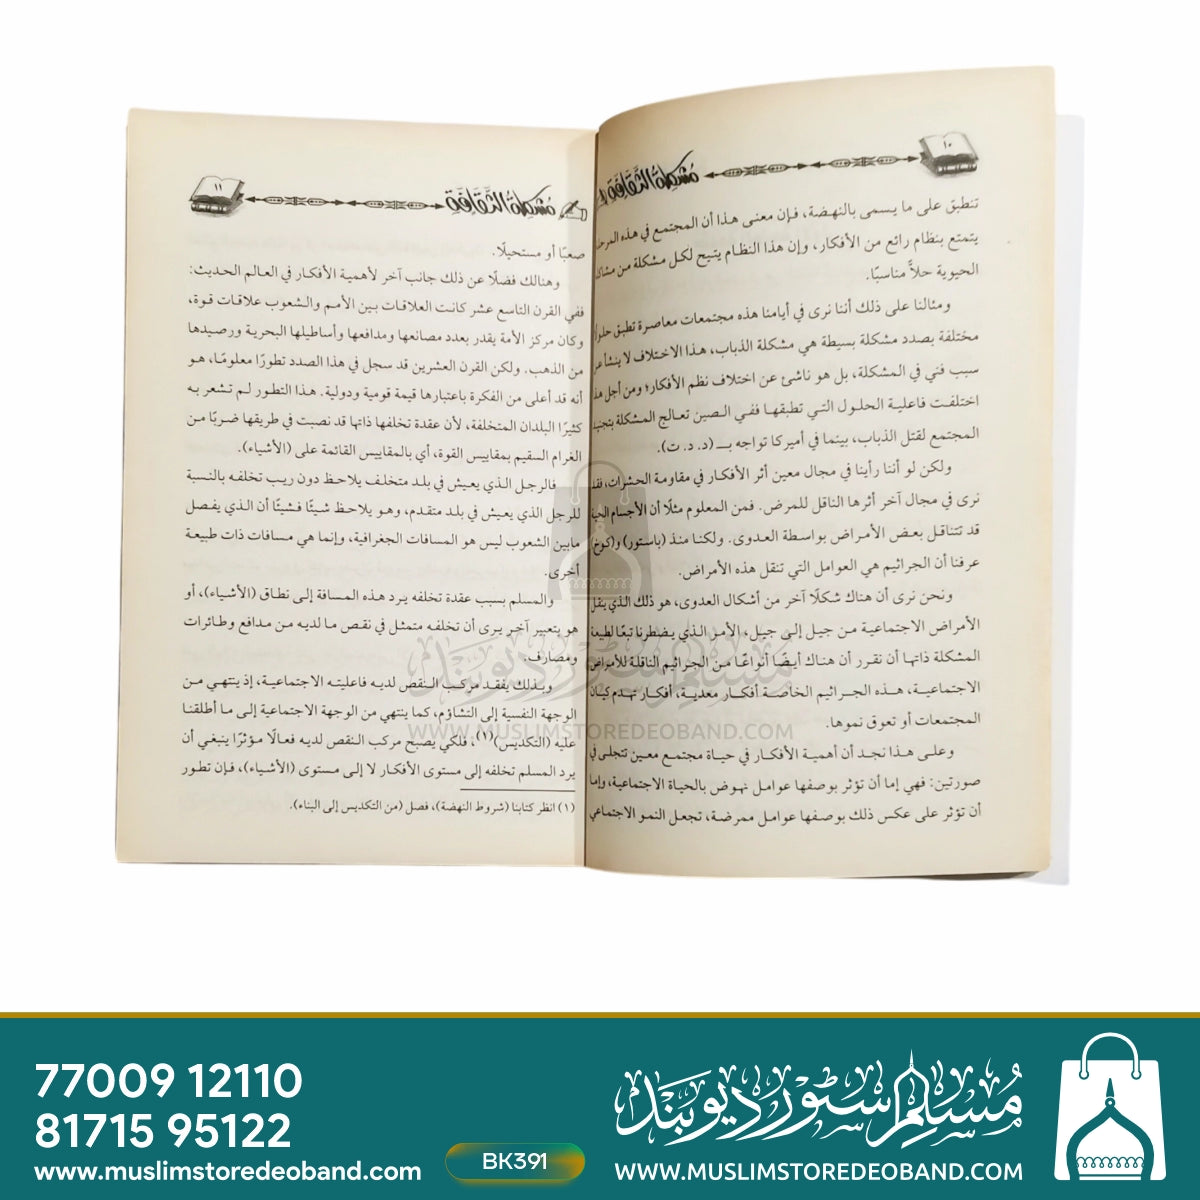 ١٠
مُشكلة الثّقافة
تنطبق على ما يسمى بالنهضة، فإن معنى هذا أن المجتمع في هذه
يتمتع بنظام رائع من الأفكار، وإن هذا النظام يتيح لكل مشكلة من
الحيوية حلاًّ مناسبًا.
ومثالنا على ذلك أننا نرى في أيامنا هذه مجتمعات معاصرة تطبق
مختلفة بصدد مشكلة بسيطة هي مشكلة الذباب، هذا الاختلاف لا ينشأ عن
سبب فني في المشكلة، بل هو ناشئ عن اختلاف نظم الأفكار؛ ومن أجل هذا
اختلفت فاعلية الحلول التي تطبقها ففي الصين تعالج المشكلة بتجنيد
المجتمع لقتل الذباب، بينما في أميركا تواجه بـ (د. د. ت).
ولكن لو أننا رأينا في مجال معين أثر الأفكار في مقاومة الحشرات، فقد
نرى في مجال آخر أثرها الناقل للمرض. فمن المعلوم مثلًا أن الأجسام الحية
قد تتناقل بعض الأمراض بواسطة العدوى. ولكنا منذ (باستور) و(كوخ)
عرفنا أن الجراثيم هي العوامل التي تنقل هذه الأمراض.
ونحن نرى أن هناك شكلًا آخر من أشكال العدوى، هو ذلك الذي ينقل
الأمراض الاجتماعية من جيل إلى جيل، الأمر الذي يضطرنا تبعًا لطبيعة
المشكلة ذاتها أن نقرر أن هناك أيضًا أنواعًا من الجراثيم الناقلة للأمراض
الاجتماعية، هذه الجراثيم الخاصة أفكار معدية، أفكار تهدم كيان
المجتمعات أو تعوق نموها.
وعلى هذا نجد أن أهمية الأفكار في حياة مجتمع معين تتجلى في
صورتين: فهي إما أن تؤثر بوصفها عوامل نهوض بالحياة الاجتماعية، وإما
أن تؤثر على عكس ذلك بوصفها عوامل ممرضة، تجعل النمو الاجتماعي
مُشكلة الثّقافة
١١
صعبًا أو مستحيلًا.
وهنالك فضلًا عن ذلك جانب آخر لأهمية الأفكار في العالم الحديث:
ففي القرن التاسع عشر كانت العلاقات بين الأمم والشعوب علاقات قوة،
وكان مركز الأمة يقدر بعدد مصانعها ومدافعها وأساطيلها البحرية ورصيدها
من الذهب. ولكن القرن العشرين قد سجل في هذا الصدد تطورًا معلومًا، هو
أنه قد أعلى من الفكرة باعتبارها قيمة قومية ودولية. هذا التطور لم تشعر به
كثيرًا البلدان المتخلفة، لأن عقدة تخلفها ذاتها قد نصبت في طريقها ضربًا من
الغرام السقيم بمقاييس القوة، أي بالمقاييس القائمة على (الأشياء).
فالرجل الذي يعيش في بلد متخلف يلاحظ دون ريب تخلفه بالنسبة
للرجل الذي يعيش في بلد متقدم، وهو يلاحظ شيئًا فشيئًا أن الذي يفصل
مابين الشعوب ليس هو المسافات الجغرافية، وإنما هي مسافات ذات طبيعة
أخرى.
والمسلم بسبب عقدة تخلفه يرد هذه المسافة إلى نطاق (الأشياء)، أو
هو بتعبير آخر يرى أن تخلفه متمثل في نقص ما لديه من مدافع وطائرات
ومصارف.
وبذلك يفقد مركب النقص لديه فاعليته الاجتماعية، إذ ينتهي من
الوجهة النفسية إلى التشاؤم، كما ينتهي من الوجهة الاجتماعية إلى ما أطلقنا
عليه (التكديس)(١)، فلكي يصبح مركب النقص لديه فعالًا مؤثرًا ينبغي أن
يرد المسلم تخلفه إلى مستوى الأفكار لا إلى مستوى (الأشياء)، فإن تطور
(١) انظر كتابنا (شروط النهضة)، فصل (من التكديس إلى البناء).
مسلم سٹور دیوبند
WWW.MUSLIMSTOREDEOBAND.COM
77009 12110
81715 95122
www.muslimstoredeoband.com
BK391
مسلم سٹور دیوبند
WWW.MUSLIMSTOREDEOBAND.COM